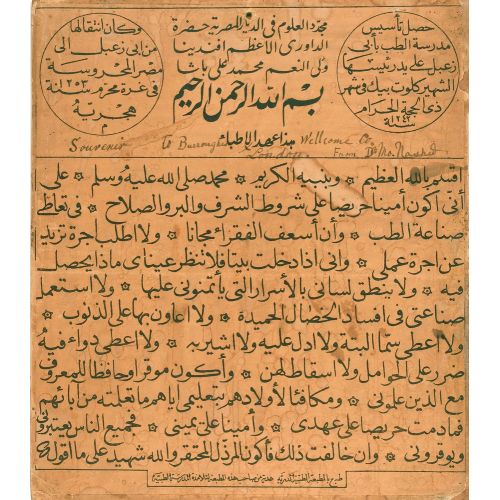 حصل تأسيس
مدرسة الطب بأبي
زعبل على يد رئيسها
الشهير كلوت بيك في شهر
ذي الحجة الحرام
سنة ١٢٤٢
مجدد العلوم في الديار المصرية حضرة
الداوري الأعظم افندينا
ولى النعم محمد على باشا
بسم الله الرحمن الرحيم
هذا عهد الأطباء
وكان انتقالها
من ابي زعبل الى
مصر المحروسة
في غرة محرم سنة
١٢٥٣
هجرية
Souvenir To Burroughs Wellcome Co.
London From Dr Mo. Rashid
اقسم بالله العظيم ۞ وبنبيه الكريم ۞ محمد صلى الله عليه وسلم ۞ على
أنى أكون أمينا حريصا على شروط الشرف والبر والصلاح ۞ في تعاطى
صناعة الطب ۞ وأن أسعف الفقراء مجانا ۞ ولا اطلب اجرة تزيد
عن اجرة عملى ۞ وانى اذا دخلت بيتا فلا تنظر عيناى ماذا يحصل
فيه ۞ ولا ينطق لسانى بالأسرار التى يأتمنونى عليها ۞ ولا استعمل
صناعتى في افساد الخصال الحميدة ۞ ولا اعاون بها على الذنوب ۞
ولا اعطى سما البتة ولا ادل عليه ولا اشير به ۞ ولا اعطى دواء فيه
ضرر على الحوامل ولا اسقاط لهن ۞ وأكون موقرا وحافظا للمعروف
مع الذين علمونى ۞ ومكافئا لأولادهم بتعليمى اياهم ما تعلمته من آبائهم
فما دمت حريصا على عهدى ۞ وأمينا على يمينى ۞ فجميع الناس يعتبرونى
ويوقرونى ۞ وان خالفت ذلك فأكون المرذل المحتقر والله شهيد على ما اقول
طبع بالمطبعة الطبية الدرية هدية من صاحب هذه المطبعة لتلامذة المدرسة الطبية